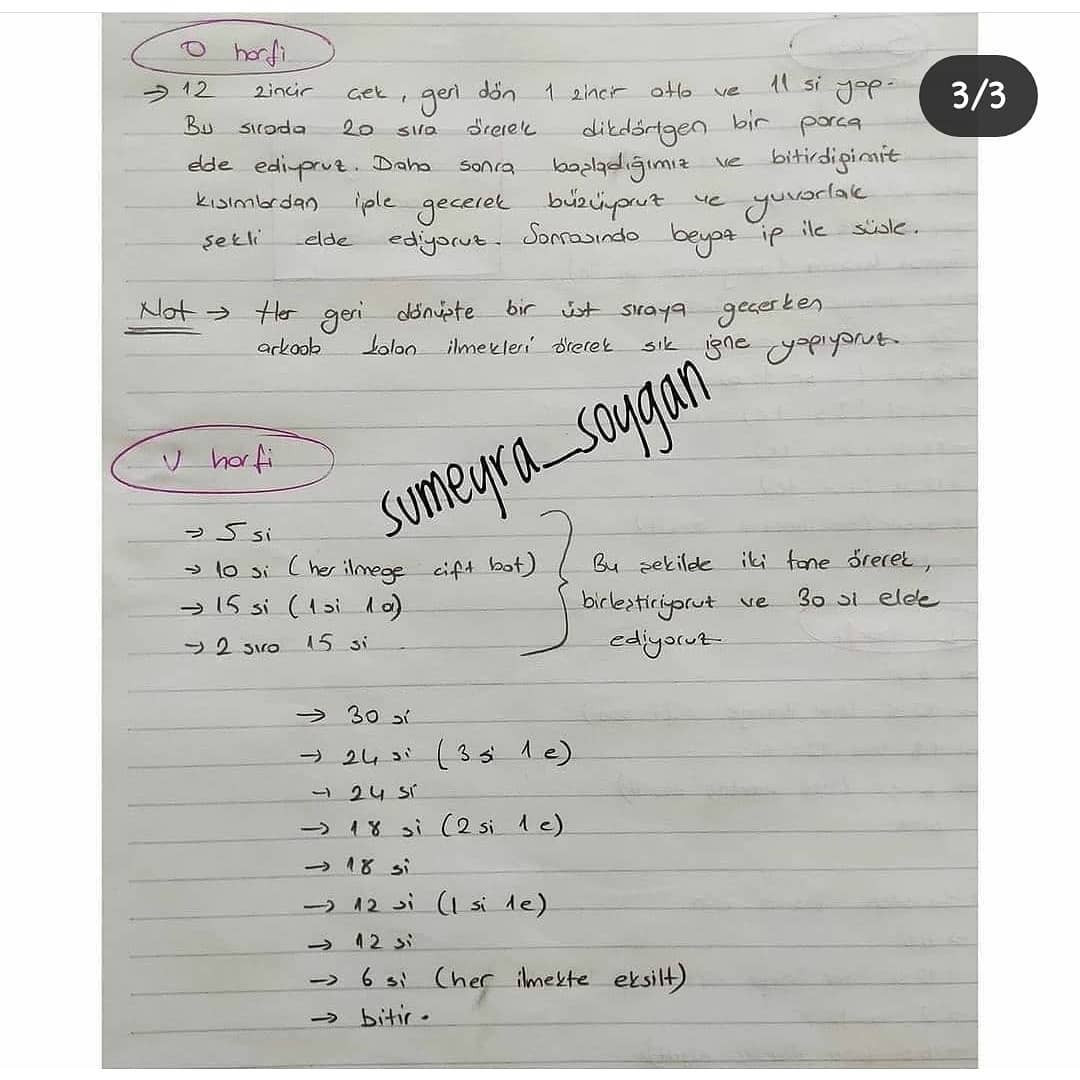 O harfi
3/3
→ 12 zincir çek, geri dön 1 zincir atla ve 11 si yap.
Bu sırada 20 sıra örerek dikdörtgen bir parça
elde ediyoruz. Daha sonra başladığımız ve bitirdiğimiz
kısımlardan iple geçerek büzüyoruz ve yuvarlak
şekli elde ediyoruz. Sonrasında beyaz ip ile süsle.
Not → Her geri dönüşte bir üst sıraya geçerken
arkada kalan ilmekleri örerek sık iğne yapıyoruz.
sumeyra_soygan
V harfi
→ 5 si
→ 10 si (her ilmege çift bat)
→ 15 si (1 si 1 a)
→ 2 sıra 15 si
Bu şekilde iki tane örerek,
birleştiriyoruz ve 30 si elde
ediyoruz
→ 30 si
→ 24 si (3 si 1 e)
→ 24 si
→ 18 si (2 si 1 e)
→ 18 si
→ 12 si (1 si 1e)
→ 12 si
→ 6 si (her ilmekte eksilt)
→ bitir.